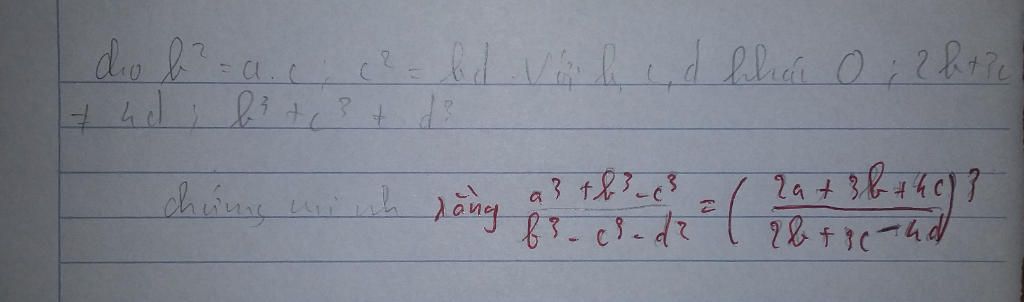 cho b² = a.c ; c² = bd . Với b, c, d khác 0 ; 2b+3c
≠ 4d ; b³ + c³ ≠ d³
chứng minh rằng (a³ + b³ - c³)/(b³ - c³ - d²) = ((2a + 3b + 4c)/(2b + 3c - 4d))³